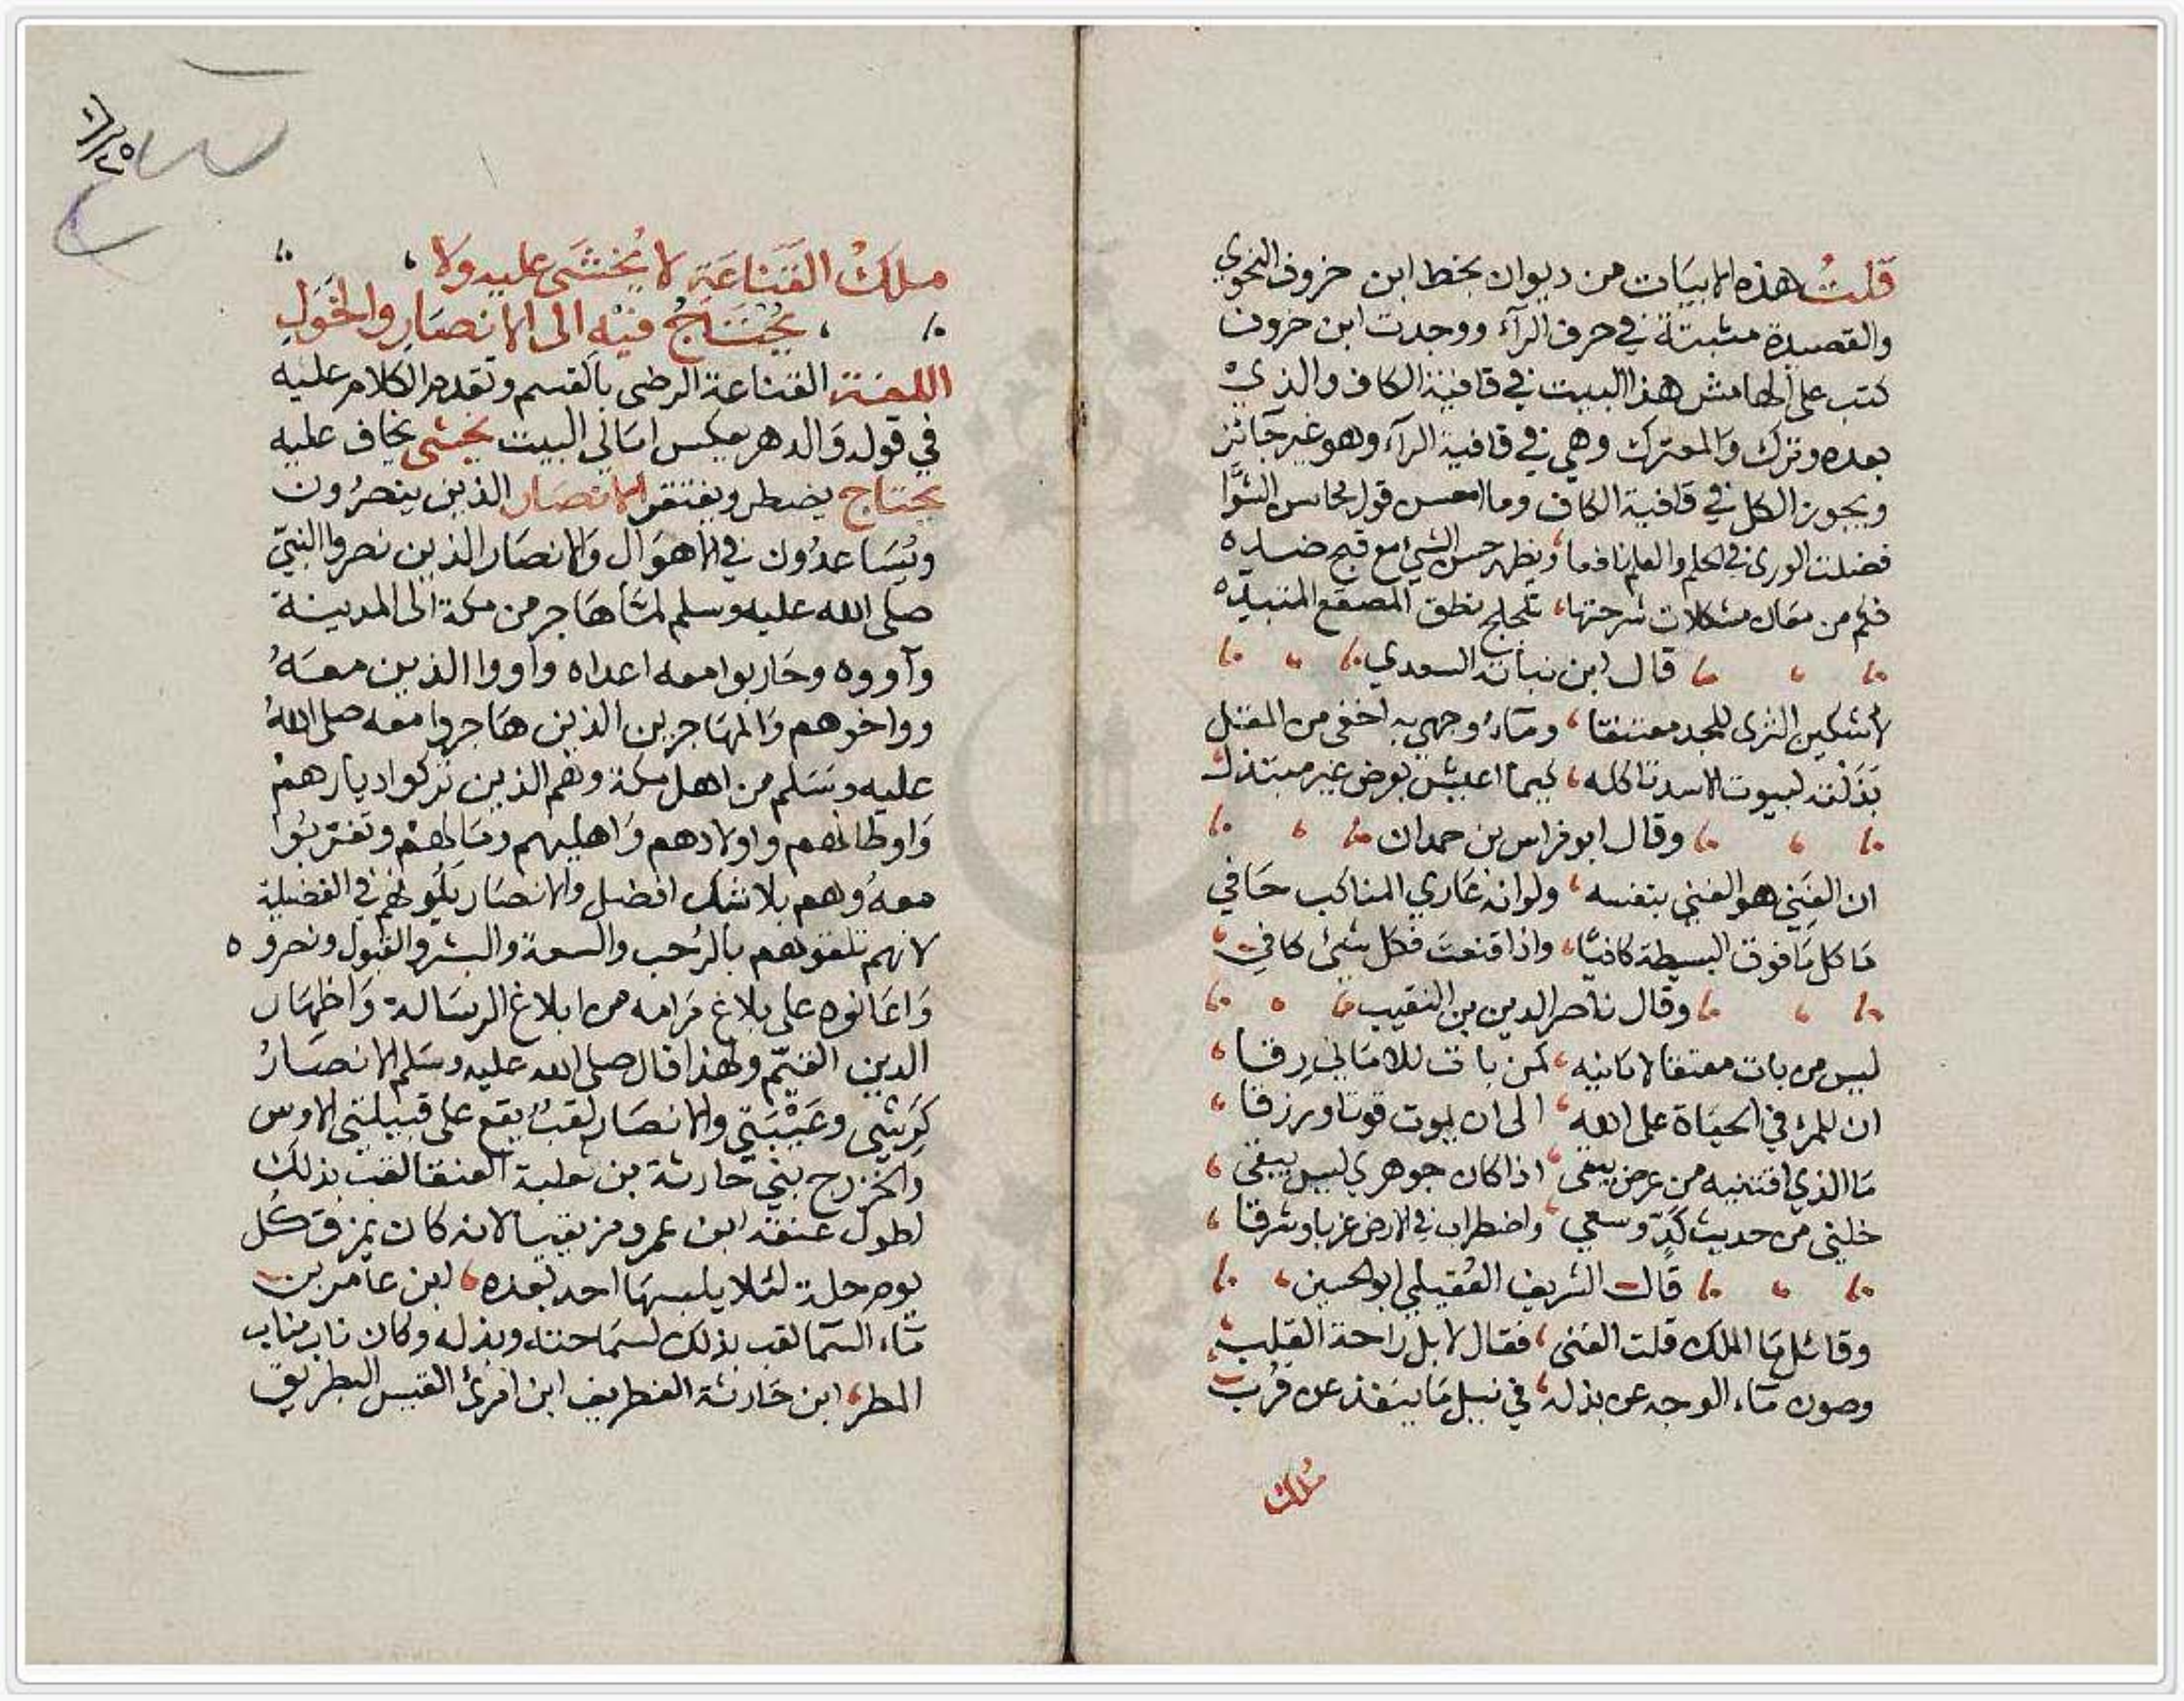 قلت هذه الابيات من ديوان بخط ابن خروف النحوي
والقصيدة مثبتة في حرف الرآء ووجدت ابن خروف
كتب على الهامش هذا البيت في قافية الكاف والذي
بعده وترك والمعترك وهي في قافية الرآء وهو غير جائز
ويجوز الكل في قافية الكاف وما احسن قول محاسن الشوا
فضلت الورى في الحلم والعلم نافعا ويظهر حسن الشئ مع قبح ضده
فكم من مقال مشكلات شرحتها تلجلج نطق المصقع المتنبه
قال ابن نباته السعدي
لاشكين الثرى للمجد معتنقا وماء وجهي به اخفى من المقتل
بذلته لبيوت الاسد تاكله كيما اعيش بعرض غير مبتذل
وقال ابو فراس بن حمدان
ان الغني هو الغني بنفسه ولو انه عاري المناكب حافي
ما كل ما فوق البسيطة كافيا واذا قنعت فكل شئ كافي
وقال ناصر الدين بن النقيب
ليس من بات معتقا لامانيه كمن بات للاماني رقا
ان للمرء في الحياة على الله الى ان يموت قوتا ورزقا
ما الذي اقتنيه من عرض يبقى اذا كان جوهري ليس يبقى
خلني من حديث كد وسعي واضطراب في الارض غربا وشرقا
قال الشريف العقيلي ابو الحسين
وقائل ما الملك قلت الغنى فقال لا بل راحة القلب
وصون ماء الوجه عن بذله في نيل ما ينفذ عن قرب
ملك
ملك القناعة لا يخشى عليه ولا
يحتاج فيه الى الانصار والخول
اللغة القناعة الرضى بالقسم وتقدم الكلام عليه
في قوله والدهر يعكس امالي البيت يخشى يخاف عليه
يحتاج يضطر ويفتقر الانصار الذين ينصرون
ويساعدون في الاهوال والانصار الذين نصروا النبي
صلى الله عليه وسلم لما هاجر من مكة الى المدينة
وآووه وحاربوا معه اعداه وآووا الذين معه
وواخوهم والمهاجرين الذين هاجروا معه صلى الله
عليه وسلم من اهل مكة وهم الذين تركوا ديارهم
واوطانهم واولادهم واهليهم ومالهم وتغربوا
معه وهم بلا شك افضل والانصار يلونهم في الفضيلة
لانهم تلقوهم بالرحب والسعة والبشر والقبول ونصروه
واعانوه على بلاغ مرامه من ابلاغ الرسالة واظهار
الدين القيم ولهذا قال صلى الله عليه وسلم الانصار
كرشي وعيبتي والانصار لقب يقع على قبيلتي الاوس
والخزرج بني حارثة بن ثعلبة العنقا لقب بذلك
لطول عنقه ابن عمرو مزيقيا لانه كان يمزق كل
يوم حلة لئلا يلبسها احد بعده ابن عامر بن
ماء السما لقب بذلك لسماحته وبذله وكان ناب مناب
المطر ابن حارثة الغطريف ابن امرئ القيس البطريق